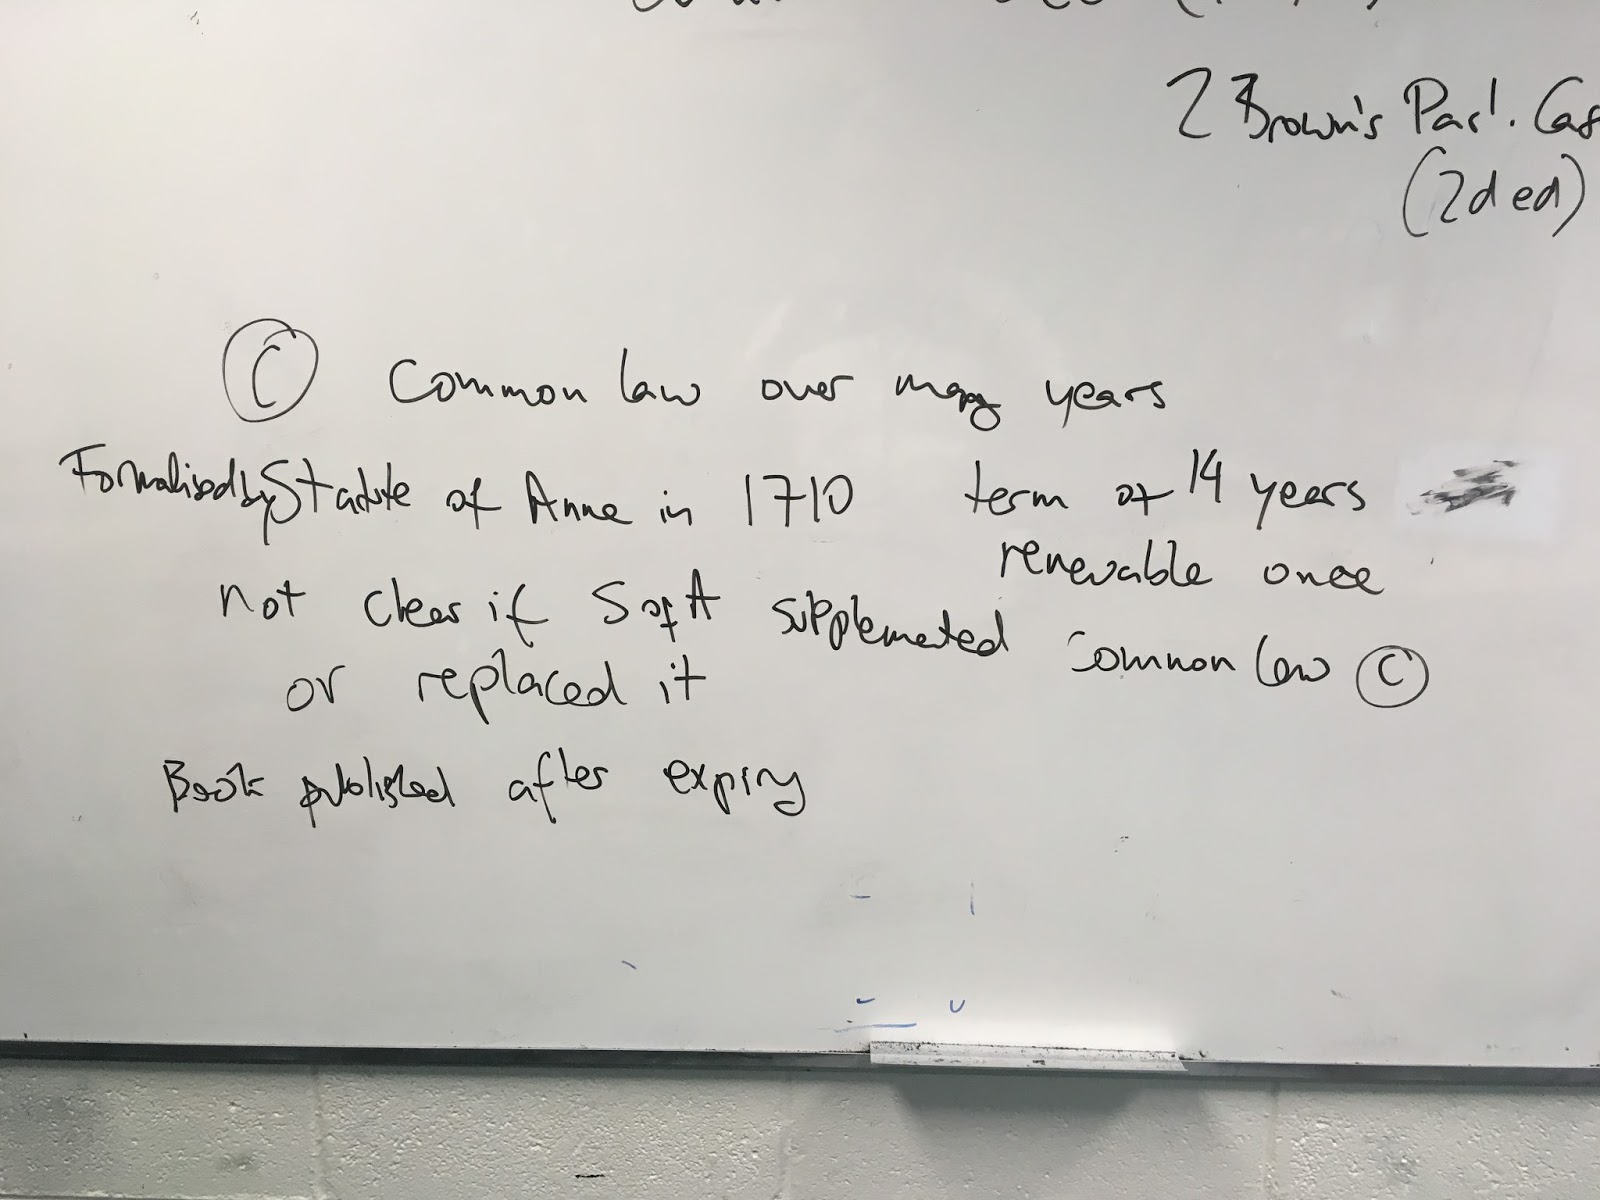 2 Brown's Parl. Cas
(2d ed)
© Common law over many years
Formalised by Statute of Anne in 1710 term of 14 years
renewable once
not clear if S of A supplemented common law ©
or replaced it
Book published after expiry